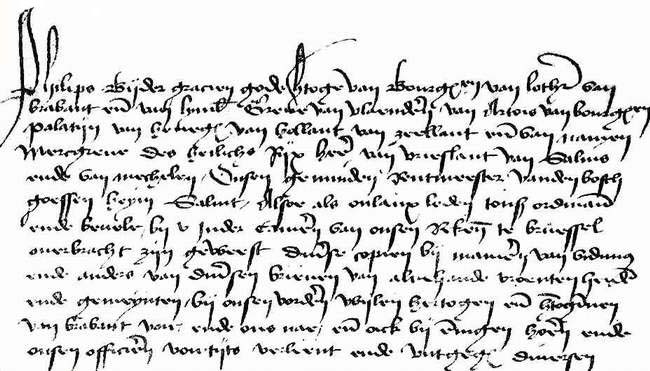 Philips Bijder gracien gods h'toge van Bourgn̄en van loth' van
brabant en̄ van lymb' Greve van vlaendr̄en van Artois van bourgn̄en
palatijn van heneg' van hollant van zeellant en̄ van namen
Mercgreve des heilichs Rijx heer̄ van vrieslant van Salins
ende van mechelen Onsen gemijnden Rentmeester vanden bosch
goessen heym Saluit Alsoe als onlanx leden tonser ordinan̄
ende bevele bij u Inder Camer̄en van onsen Reken̄ te bruessel
overbracht zijn geweest div'se copien bij manier̄en van vidimus
ende anders van div'sen brieven van alrehande vroenten heerd'
ende gemeynten bij onsen vorder̄en wijlen hertogen en̄ h'toghin̄en
van brabant voir ende ons nae en̄ oick bij enigen hoer̄en ende
onsen officier̄en voirtijts verleent ende uutgegeven diversen